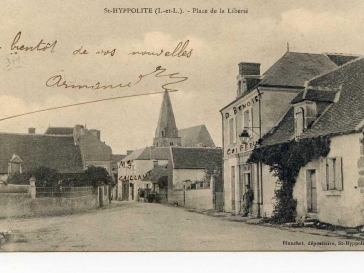 St-HYPPOLITE (I.-et-L.). - Place de la Liberté
a bientôt de vos nouvelles
Armance
P. BENOIT
Blanchet, dépositaire, St-Hyppolite